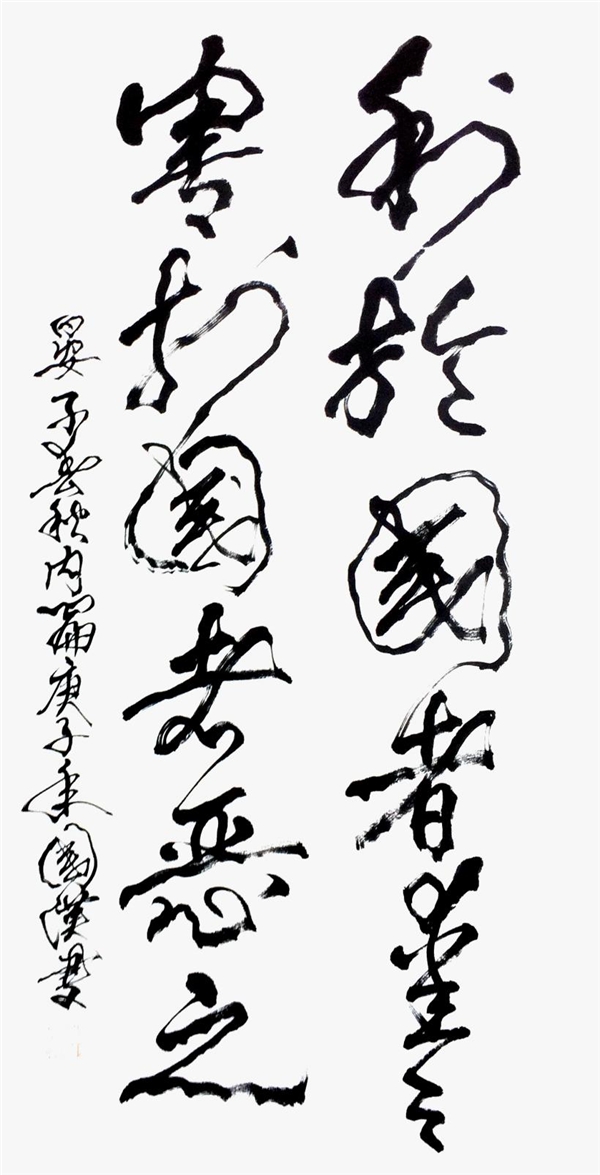 利於國者愛之
害於國者惡之
晏子春秋内篇庚子年國漢書